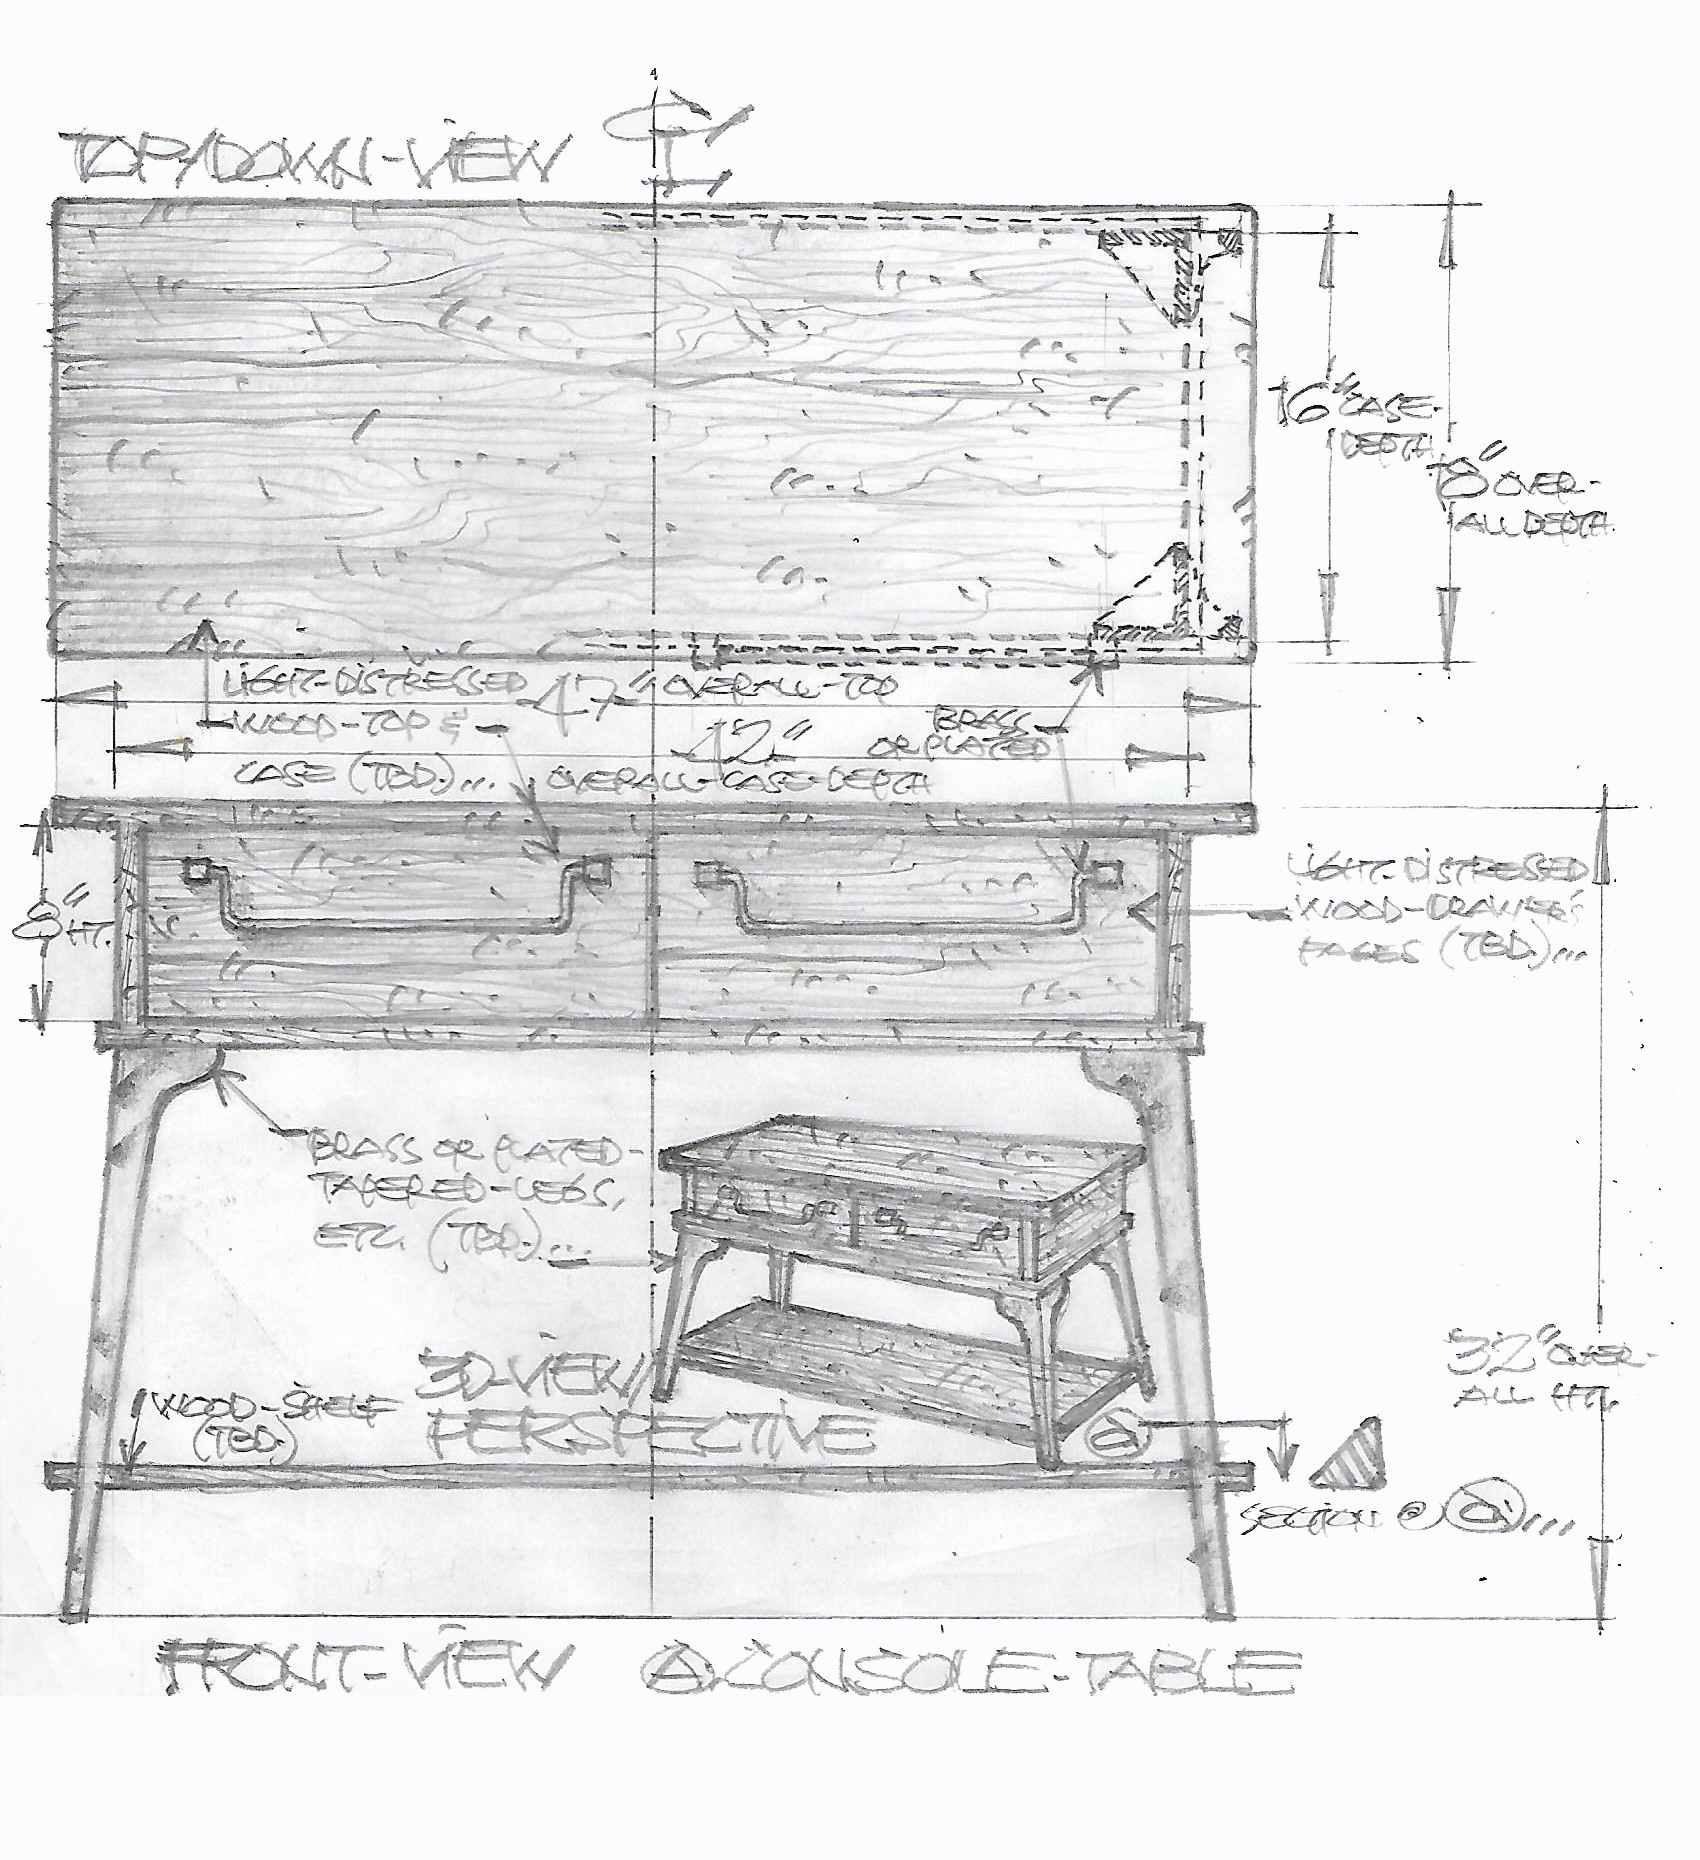 TOP/DOWN-VIEW
CL
16" CASE-
DEPTH
18" OVER-
ALL DEPTH
LIGHT-DISTRESSED
WOOD-TOP &
CASE (TBD.)...
47" OVERALL-TOP
42"
OVERALL-CASE-DEPTH
BRASS
OR PLATED
8" HT.
LIGHT-DISTRESSED
WOOD-DRAWERS
FACES (TBD.)...
BRASS OR PLATED-
TAPERED-LEGS,
ETC. (TBD.)...
3D-VIEW/
PERSPECTIVE
WOOD-SHELF
(TBD.)
32" OVER-
ALL HT.
SECTION @ a...
FRONT-VIEW A. CONSOLE-TABLE